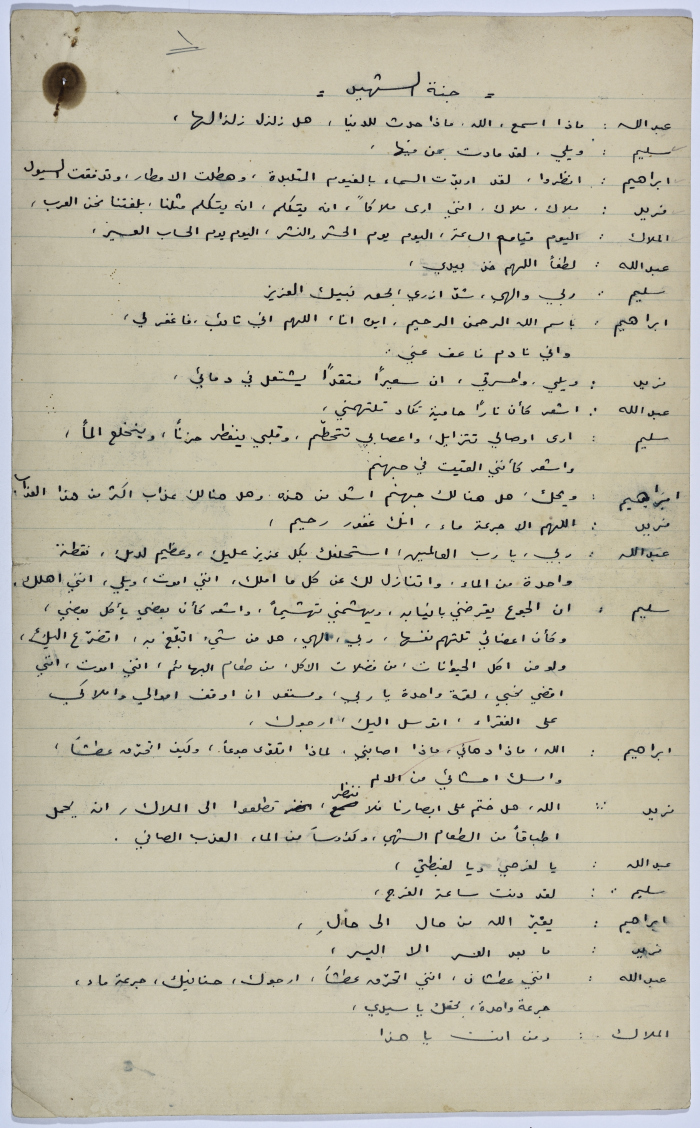 ١
= جنة الشهيد =
عبدالله : ماذا اسمع، الله، ماذا حدث للدنيا، هل زلزل زلزالها،
سليم : ويلي، لقد مادت بمن فيها.
ابراهيم : انظروا، لقد اربدّت السماء بالغيوم المتلبدة، وهطلت الامطار، وتدفقت السيول
فريد : ملاك، ملاك، انني ارى ملاكاً، انه يتكلم، انه يتكلم مثلنا، بلغتنا نحن العرب،
الملاك : اليوم قيامة الساعة، اليوم يوم الحشر والنشر، اليوم يوم الحساب العسير،
عبدالله : لطفاً اللهم خذ بيدي،
سليم : ربي والهي، شدّ ازري بحق نبيك العزيز
ابراهيم : باسم الله الرحمن الرحيم، ايه انا، اللهم اني تائب، فاغفر لي،
واني نادم فاعف عني.
فريد : ويلي، واحسرتي، ان سعيرًا متقدًا يشتعل في دمائي،
عبدالله : اشعر كأن نارًا حامية تكاد تلتهمني،
سليم : ارى اوصالي تتزايل، واعصابي تتحطّم، وقلبي ينفطر حزناً، وينخلع المأ،
واشعر كأنني القيت في جهنم
ابراهيم : ويحك، هل هنالك جهنم اشد من هذه وهل هنالك عذاب اكثر من هذا العذاب.
فريد : اللهم الا جرعة ماء، انك غفور رحيم،
عبدالله : ربي، يا رب العالمين، استحلفك بكل عزيز عليك، وعظيم لديك، نقطة
واحدة من الماء، واتنازل لك عن كل ما املك، انني اموت، ويلي، انني اهلك.
سليم : ان الجوع يقرضني بانيابه، ويهشمني تهشيماً، واشعر كأن بعضي يأكل بعضي،
وكأن اعضائي تلتهم نفسها، ربي، الهي، هل من شيء اتبلّغ به، اتضرّع اليك،
ولو من اكل الحيوانات، من فضلات الاكل، من طعام البهائم، انني اموت، انني
اقضي نحبي، لقمة واحدة يا ربي، ومستعد ان اوقف اموالي واملاكي
على الفقراء، اتوسل اليك، ارجوك،
ابراهيم : الله، ماذا دهاني، ماذا اصابني، لماذا اتلوّى جوعاً، وكيف اتحرّق عطشاً،
وامسك احشائي من الالم
فريد : الله، هل ختم على ابصارنا فلا ننظر، تطلعوا الى الملاك، انه يحمل
اطباقاً من الطعام الشهي، وكؤوساً من الماء العذب الصافي.
عبدالله : يا لفرحي ويا لغبطتي،
سليم : لقد دنت ساعة الفرج،
ابراهيم : يغيّر الله من حال الى حال،
فريد : ما بعد العسر الا اليسر،
عبدالله : انني عطشان، انني اتحرّق عطشاً، ارجوك، حنانيك، جرعة ماء،
جرعة واحدة، بحقك يا سيدي،
الملاك : ومن انت يا هذا